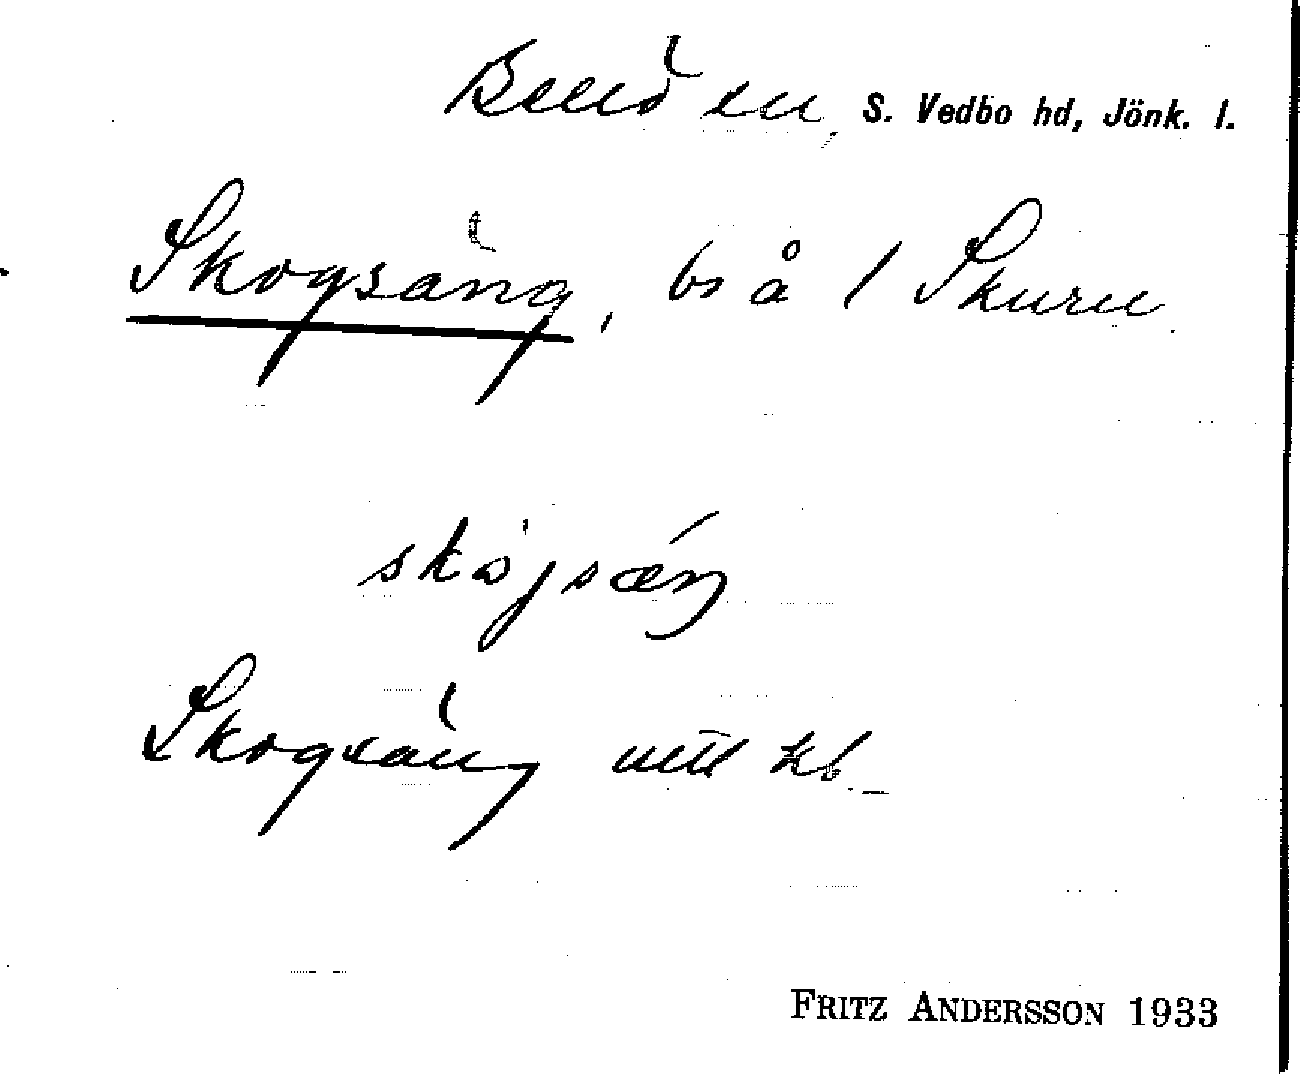 Bellö sn, S. Vedbo hd, Jönk. l.
Skogsäng, bs å 1 Skuru
skòjsǽŋ
Skogsäng utt kb.
FRITZ ANDERSSON 1933